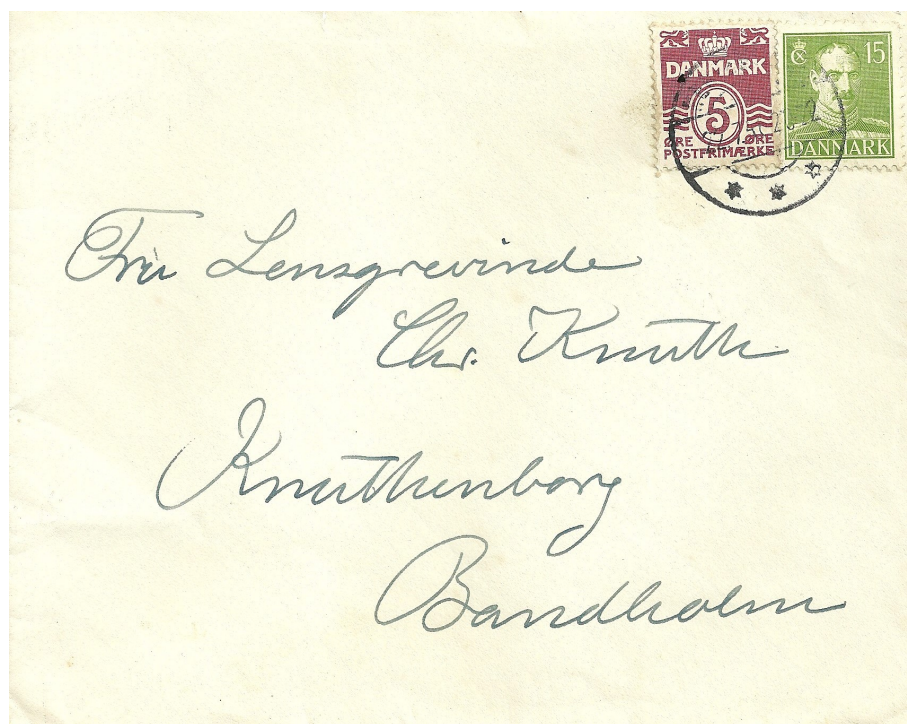 DANMARK
5
ØRE ØRE
POSTFRIMÆRKE
15
DANMARK
Fru Lensgrevinde
Chr. Knuth
Knuthenborg
Bandholm